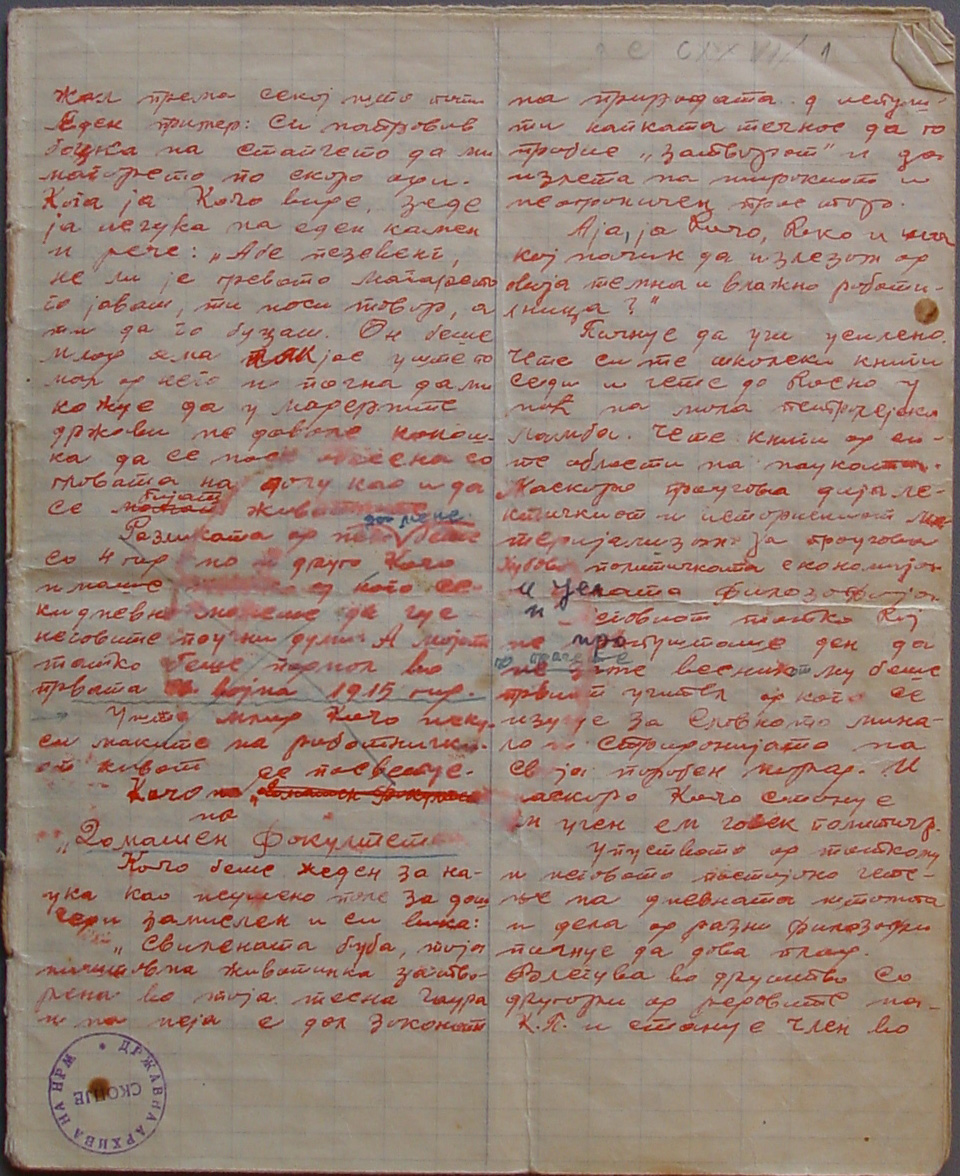 жал према секој што
Еден пример: Си направив
боцка на стапчето да ми
магарето по скоро оди.
Кога ја Кочо виде, зеде
ја исчука на еден камен
и рече: „Абе пезевенг,
не ли је гревота магарето
го јаваш, ти носи товар, а
ти да го буцаш. Он беше
млад ама јас уште по
млад од него и почна да ми
кажуе да у модерните
држави не
ка да се
главата на долу као и да
се бијат
Разликата од мене беше
со 4 год но
имаше од кого се-
кидневно можеше да чуе
неговите поучни думи. А мојот
татко беше погинал во
првата војна 1915 год.
Уште млад Кочо
си маките на работнички-
от живот се посветуе.
Кочо на
на
„Домашен факултет
Кочо беше жеден за на-
ука као исушено поле за дош
замислен и си вика:
„Свилената буба, тоја
животинка затво-
рена во тоја тесна чаура
и на неја е дал законот
на природата д испуш-
ти капката течнос да го
пробие „затворот“ и да
излета на широкиот и
неограничен простор.
Аја, ја Кочо, како и на
кој начин да излезам од
овија темна и влажна работи-
лница?“
Почнуе да учи усилено.
Чете си те школски книги
седи и чете до касно у
ноќ на мола петролејска
ламба. Чете книги од си-
те области на науката.
Наскоро проучова дијале-
ктичкиот и историскиот ма-
теријализам за проучова
политичката економија
и целата филозофија
и неговиот татко Кој
не пропушташе ден да
не земе весникот му беше
првиот учител од кого се
изучуе за Славното мина-
ло и
својя поробен народ. И
наскоро Кочо стануе
ем учен ем човек политичар.
Упуството од таткому
и неговото постојано чете-
ње на дневната штампа
и дела од разни филозофи
почнуе да дава плод.
Влегува во друштво со
другари од редовите на-
К.П. и стануе член во
ДРЖАВНА АРХИВА НА НРМ
СКОПЈЕ